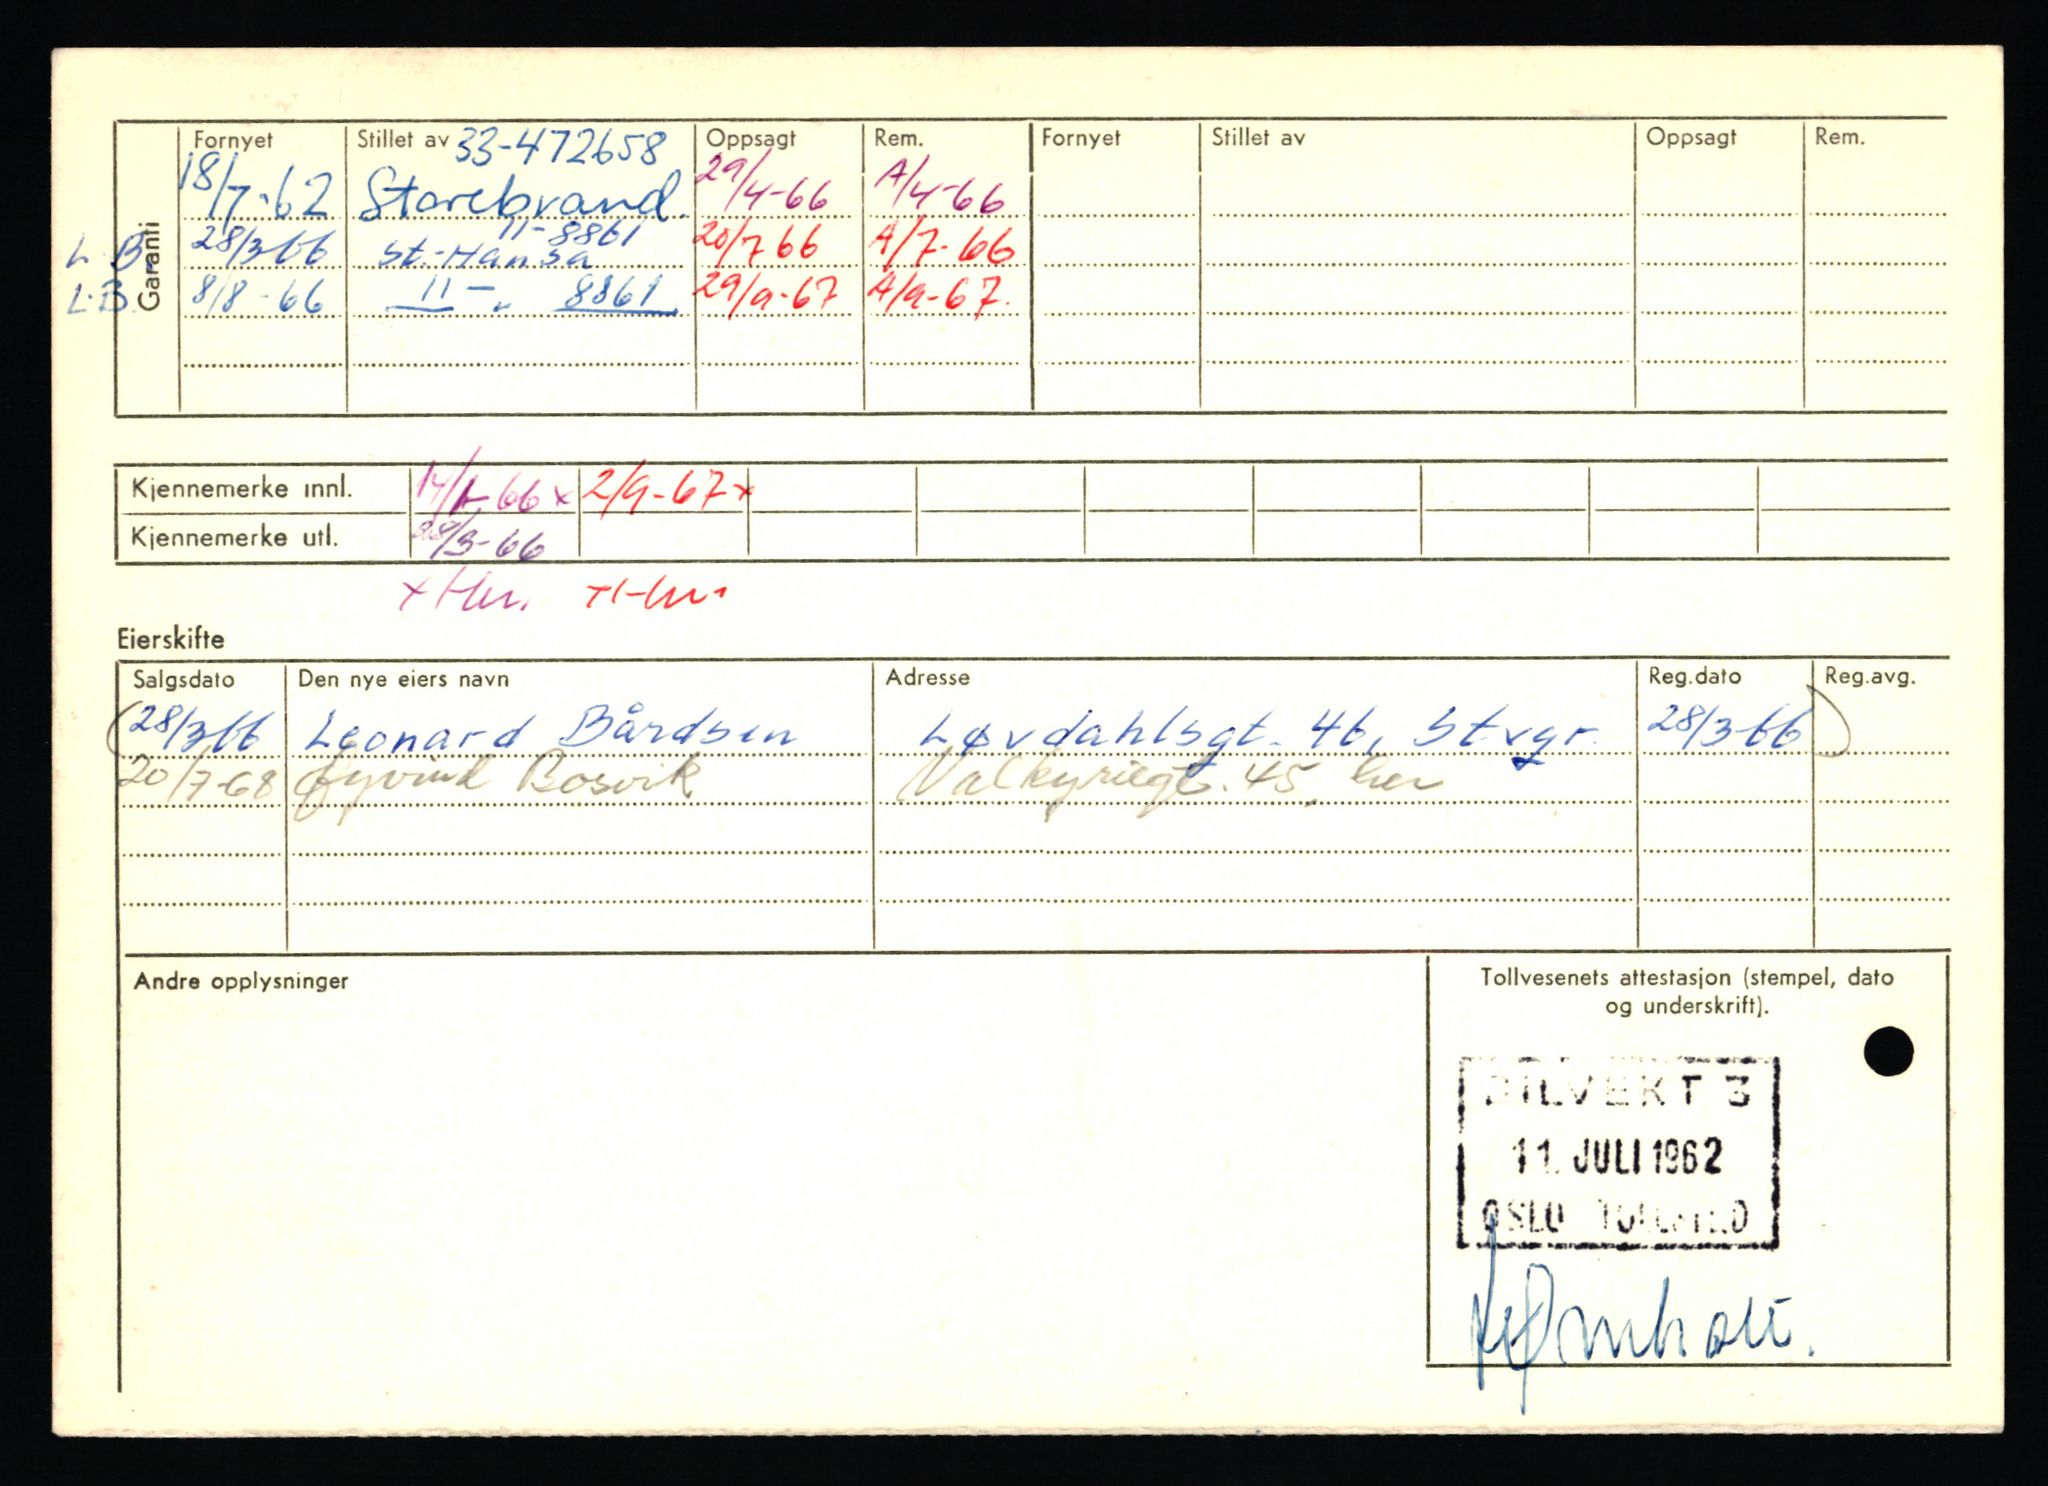 Garanti
Fornyet Stillet av 33-472658 Oppsagt Rem. Fornyet Stillet av Oppsagt Rem.
18/7-62 Storebrand. 29/4-66 A/4-66
11-8861
L.B. 28/3 66 St.-Hansa 20/7 66 A/7-66
L.B. 8/8-66 —11— 8861 29/9-67 A/9-67.
Kjennemerke innl. 14/1-66 x 2/9-67 x
Kjennemerke utl. 28/3-66
Eierskifte
Salgsdato Den nye eiers navn Adresse Reg.dato Reg.avg.
(28/3 66 Leonard Bårdsen Løvdahlsgt. 46, Stvgr. 28/3-66)
20/7-68 Øyvind Bosvik Valkyriegt. 45, her
Andre opplysninger
Tollvesenets attestasjon (stempel, dato
og underskrift).
BILVEKT 3
11. JULI 1962
OSLO TOLLSTED